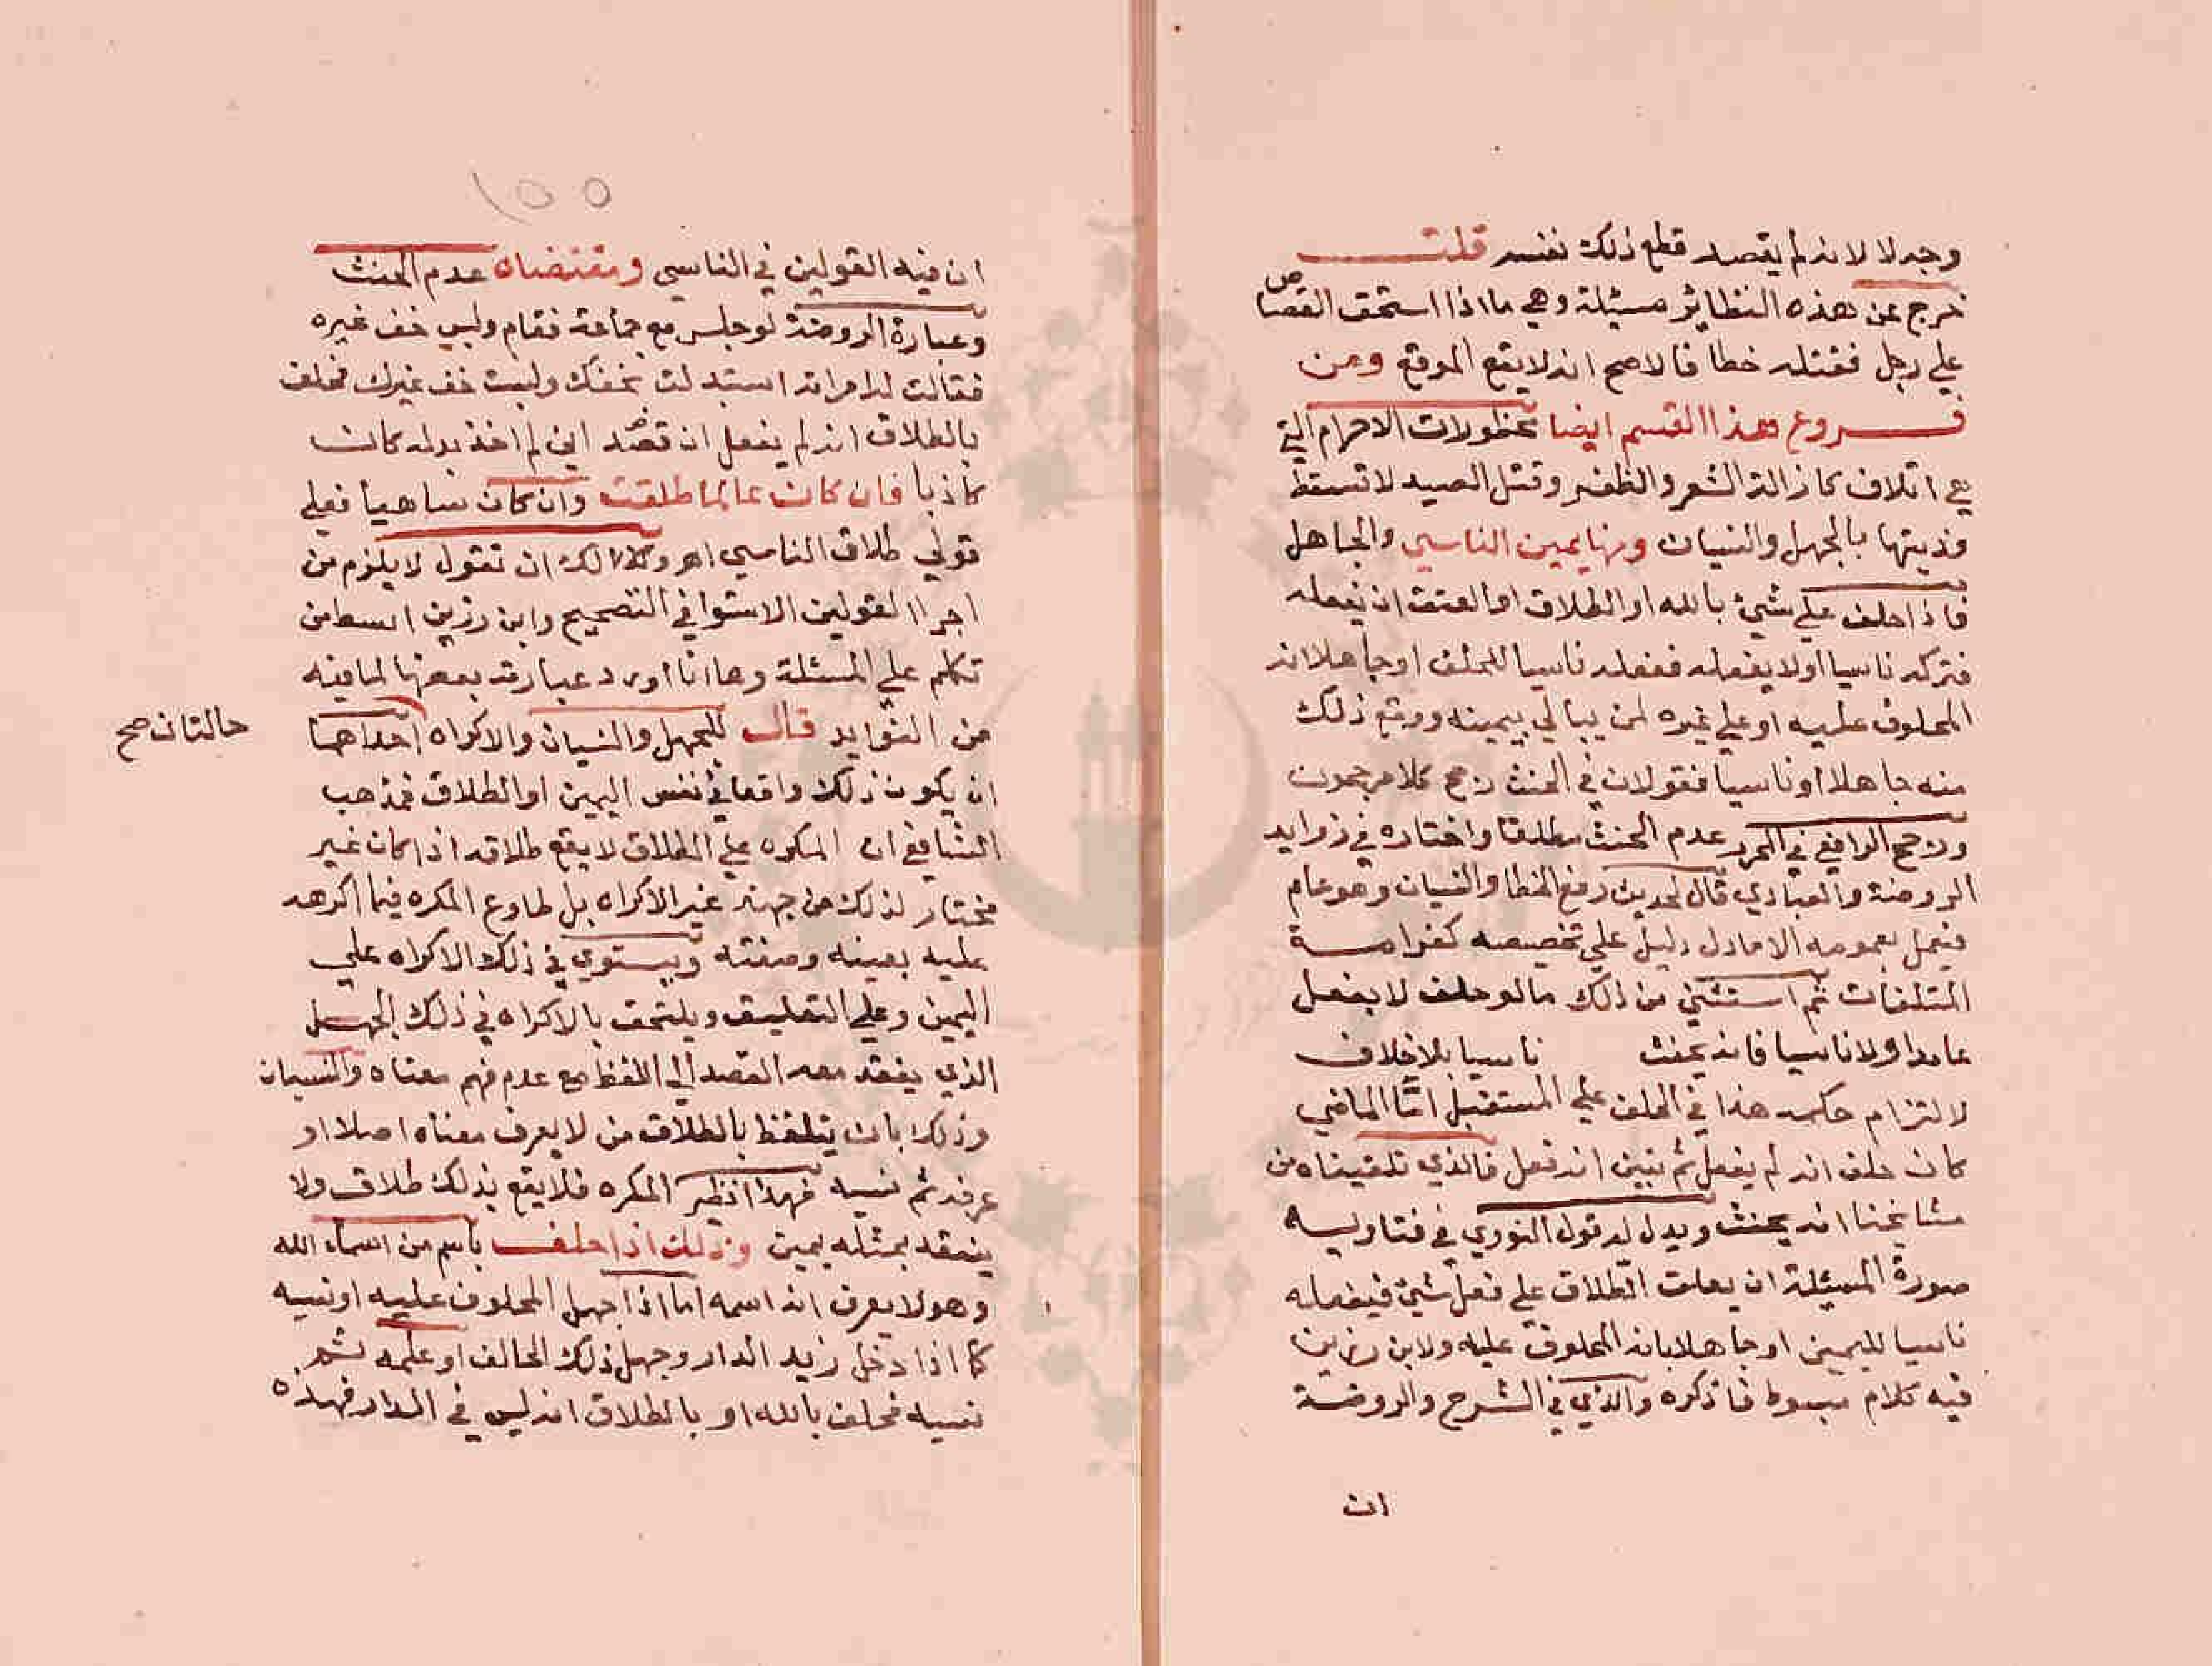 وجه لا لانه لم يقصد قطع ذلك نفسه قلت
خرج عن هذه النظائر مسئلة وهي ما اذا استحق القصاص
علي رجل فقتله خطا فالاصح انه لا يقع الموقع ومن
فروع هذا القسم ايضا محظورات الاحرام التي
هي اتلاف كازالة الشعر والظفر وقتل الصيد لا تسقط
فديتها بالجهل والنسيان ومنها يمين الناسي والجاهل
فاذا حلف علي شيئ بالله او الطلاق او العتق ان يفعله
فتركه ناسيا اولا يفعله ففعله ناسيا للحلف او جاهلا انه
المحلوف عليه او علي غيره لمن يبالي بيمينه ووقع ذلك
منه جاهلا او ناسيا فقولان في الحنث رجح كلا مرجحون
ورجح الرافعي في المحرر عدم الحنث مطلقا واختاره في زوايد
الروضة والعبادي قال لحديث رفع الخطا والنسيان وهو عام
فيعمل بعمومه الا ما دل دليل علي تخصيصه كغرامة
المتلفات ثم استثني من ذلك ما لو حلف لا يفعل
عامدا ولا ناسيا فانه يحنث ناسيا بلا خلاف
لالتزام حكمه هذا في الحلف علي المستقبل امّا الماضي
كان حلف انه لم يفعل ثم تبين انه فعل فالذي تلقيناه من
مشايخنا انه يحنث ويدل له قول النووي في فتاويه
صورة المسئلة ان يعلق الطلاق علي فعل شيئ فيفعله
ناسيا لليمين او جاهلا بانه المحلوف عليه ولابن رزين
فيه كلام مبسوط فاذكره والذي في الشرح والروضة
ان
١٥٥
ان فيه القولين في الناسي ومقتضاه عدم الحنث
وعبارة الروضة لو جلس مع جماعة فقام ولبس خف غيره
فقالت له امراته استبدلت بخفك ولبست خف غيرك فحلف
بالطلاق انه لم يفعل ان قصد اني لم اخذ بدله كان
كاذبا فان كان عالما طلقت وان كان ساهيا فعلي
قولي طلاق الناسي اهـ ولك ان تقول لا يلزم من
اجرا القولين الاستوا في التصحيح وابن رزين ابسط من
تكلم علي المسئلة وها انا اورد عبارته بعضها لما فيه
من الفوايد قال للجهل والنسيان والاكراه احداهما
حالتان صح
ان يكون ذلك واقعا في نفس اليمين او الطلاق فمذهب
الشافعي ان المكره علي الطلاق لا يقع طلاقه اذا كان غير
مختار لذلك من جهة غير الاكراه بل طاوع المكره فيما اكرهه
عليه بعينه وصفته ويستوي في ذلك الاكراه علي
اليمين وعلي التعليق ويلتحق بالاكراه في ذلك الجهل
الذي يفقد معه القصد الي اللفظ مع عدم فهم معناه والنسيان
وذلك بان يتلفظ بالطلاق من لا يعرف معناه اصلا او
عرفه ثم نسيه فهذا نظير المكره فلا يقع بذلك طلاق ولا
ينعقد بمثله يمين وذلك اذا حلف باسم من اسماء الله
وهو لا يعرف انه اسمه اما اذا جهل المحلوف عليه او نسيه
كما اذا دخل زيد الدار وجهل ذلك الحالف او علمه ثم
نسيه فحلف بالله او بالطلاق انه ليس في الدار فهذه